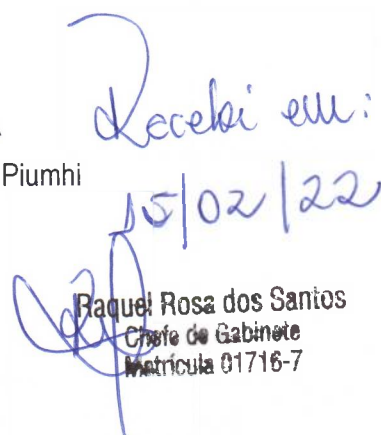 Recebi em:
Piumhi
15/02/22
Raquel Rosa dos Santos
Chefe de Gabinete
Matrícula 01716-7